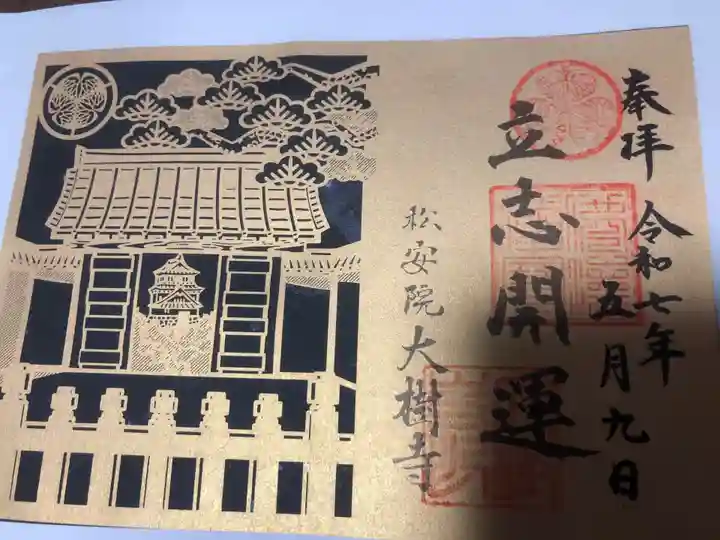 奉拝 令和七年
五月九日
立志開運
松安院大樹寺